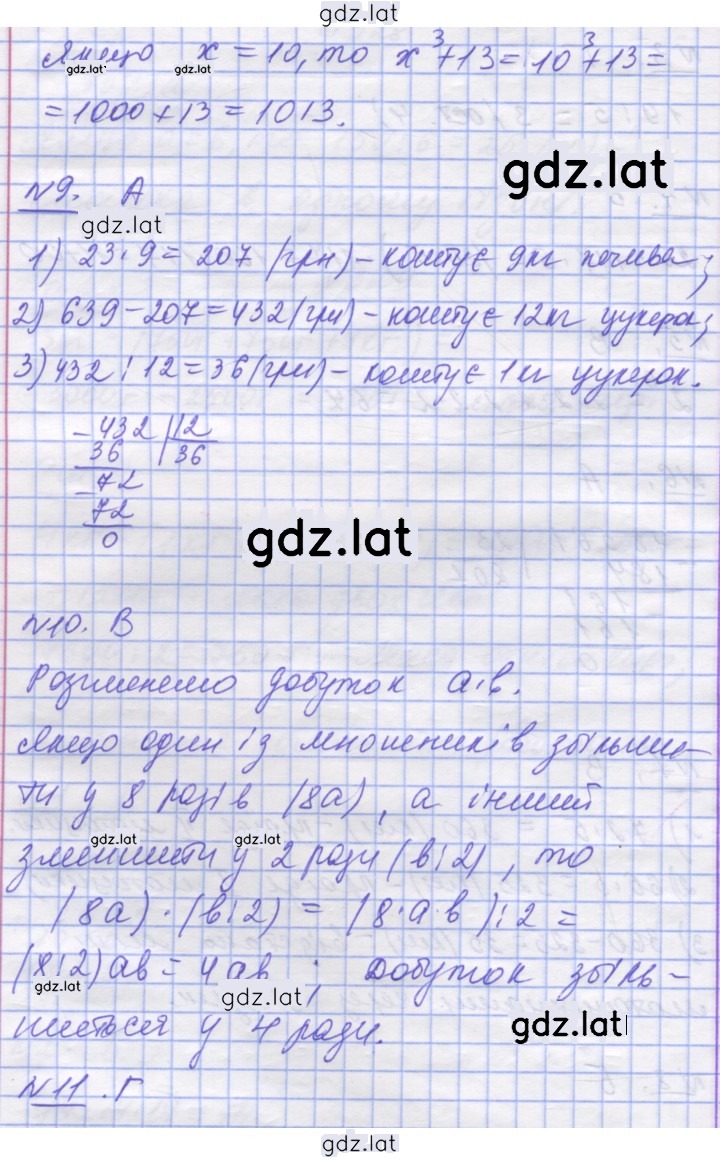 gdz.lat
Якщо x = 10, то x³+13 = 10³+13 =
gdz.lat gdz.lat
= 1000+13 = 1013.
gdz.lat
№9. А
gdz.lat
1) 23·9 = 207 (грн) – коштує 9 кг печива;
2) 639–207 = 432 (грн) – коштує 12 кг цукерок;
3) 432 : 12 = 36 (грн) – коштує 1 кг цукерок.
– 432 | 12
36 36
– 72
72
0
gdz.lat
№10. В
Розглянемо добуток a·b.
Якщо один із множників збільши-
ти у 8 разів (8a), а інший
gdz.lat gdz.lat
зменшити у 2 рази (b:2), то
(8a)·(b:2) = (8·a·b):2 =
(8:2)ab = 4ab; добуток збіль-
gdz.lat gdz.lat
шиться у 4 рази.
gdz.lat
№11. Г
gdz.lat